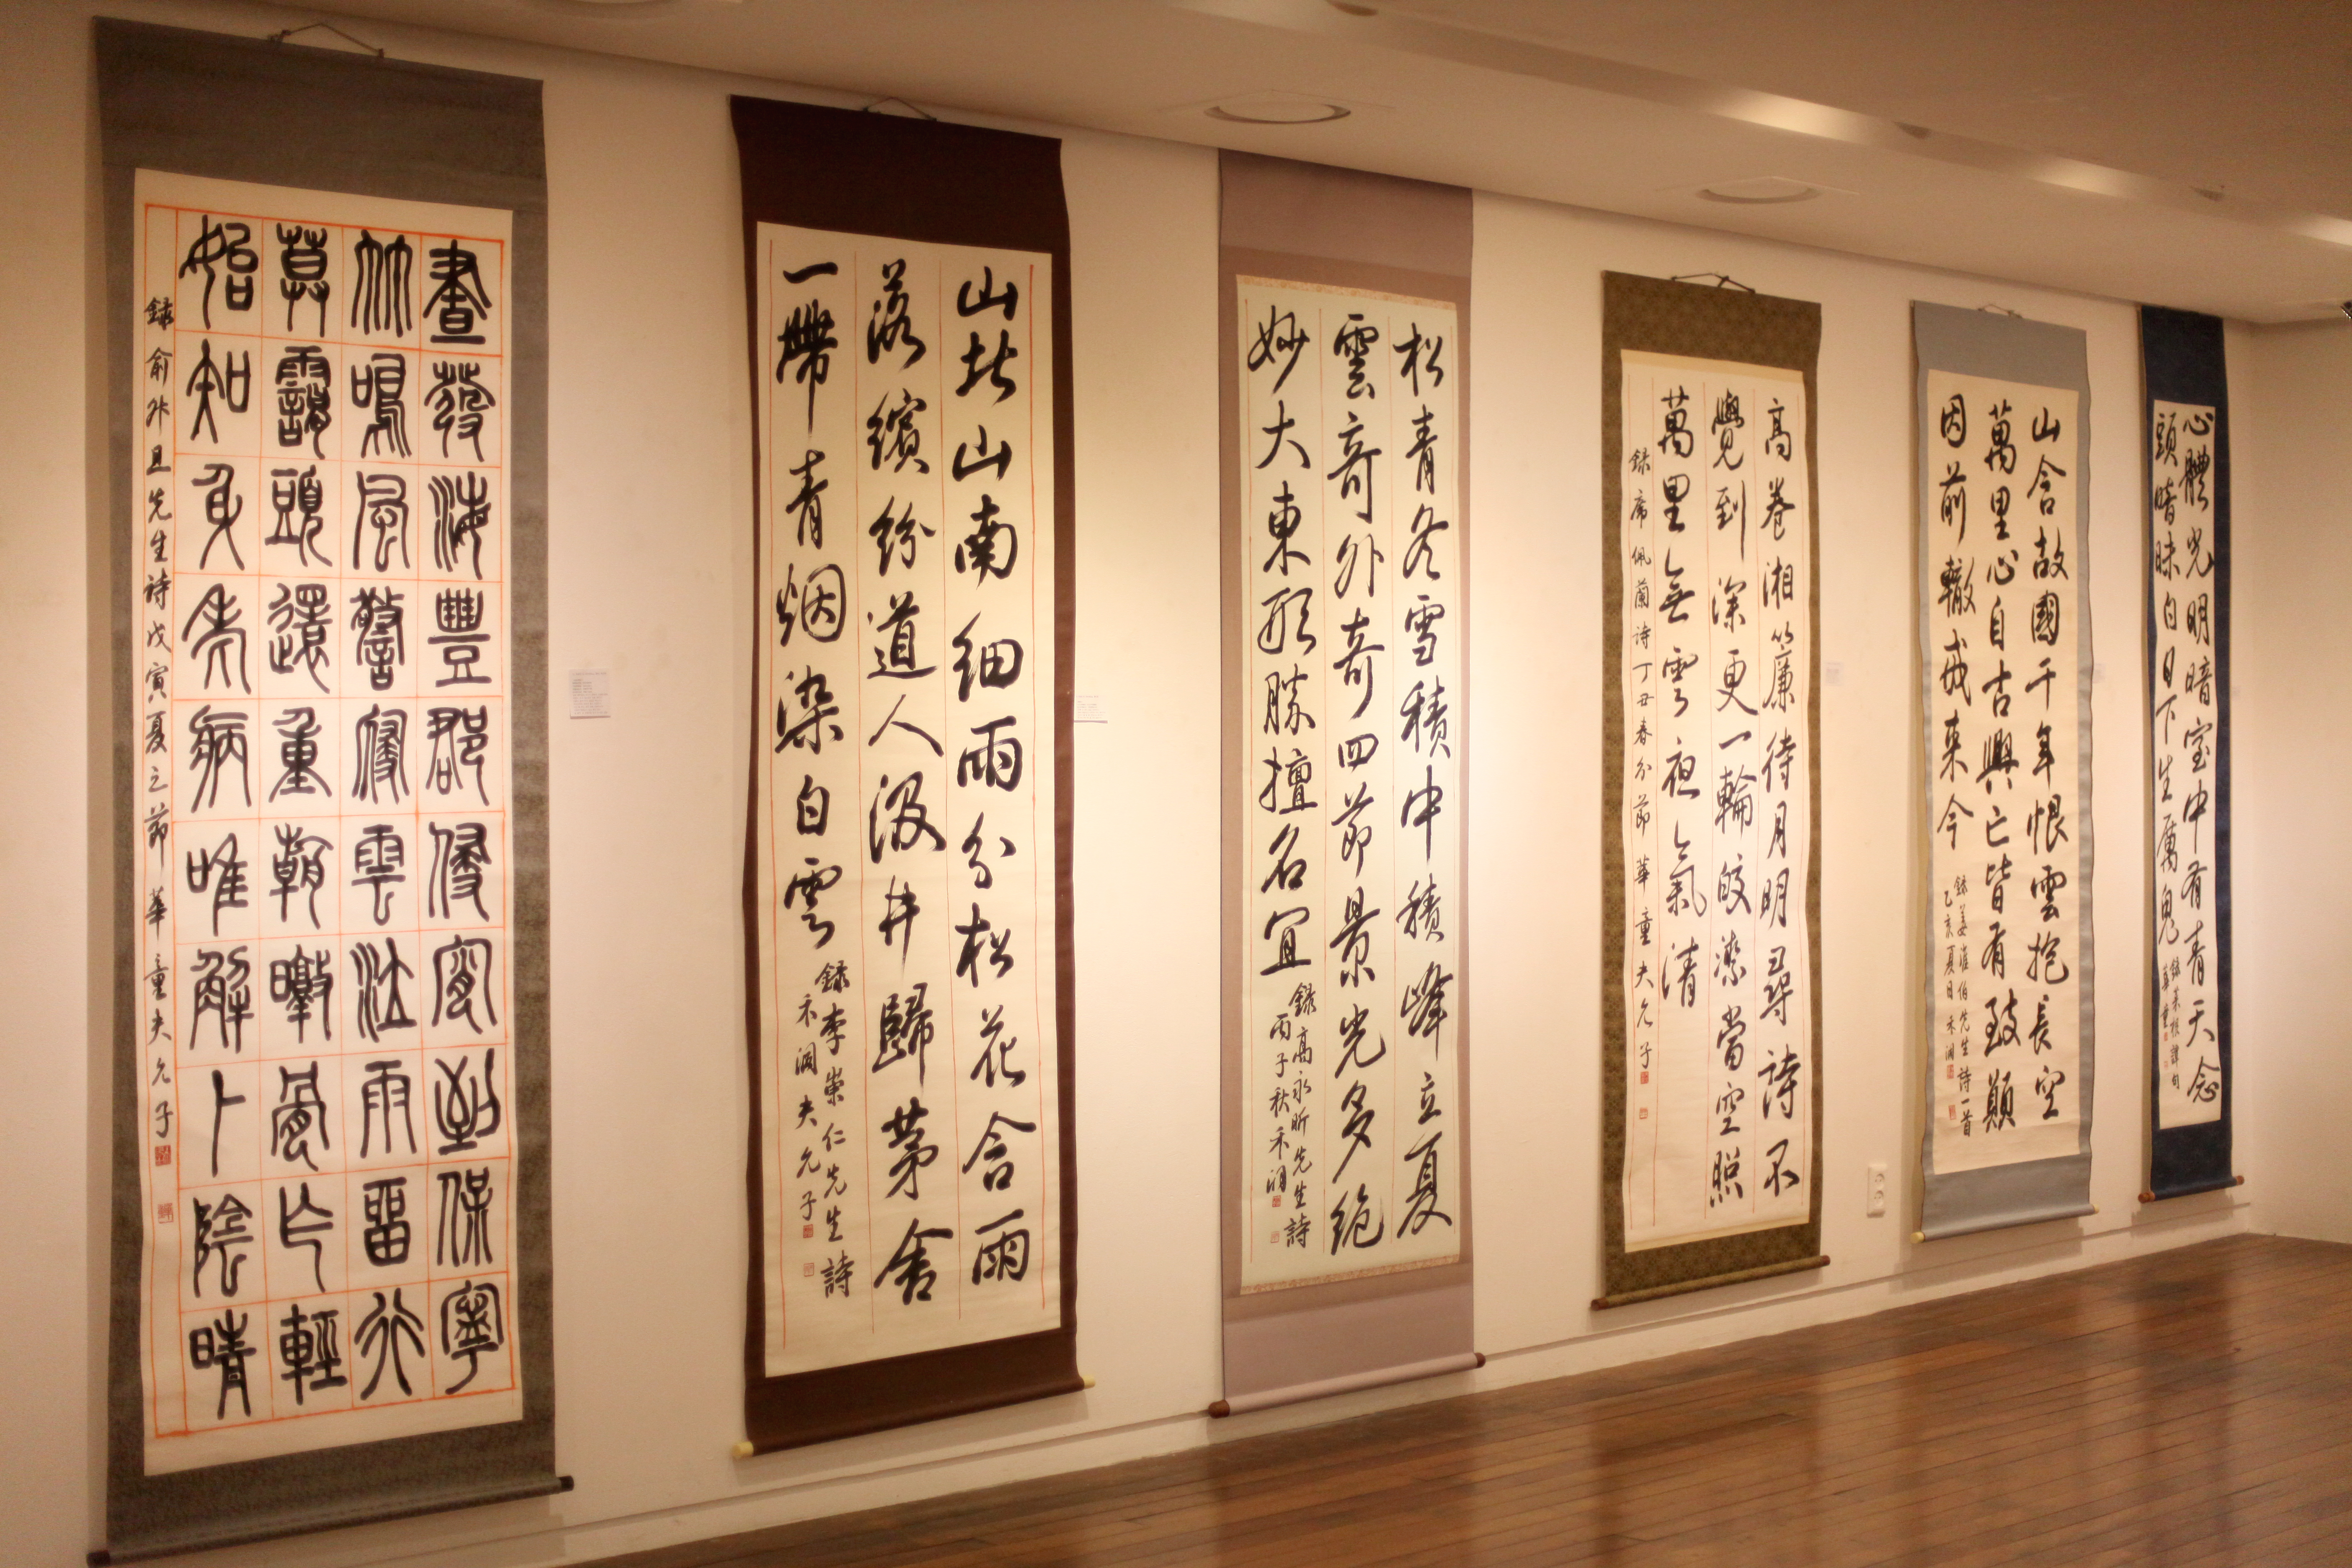 晝發海豐郡侵宵到保寧
竹鳴風警寢雲泣雨留行
暮靄頭還重朝暾骨乍輕
始知身老病唯解卜陰晴
録兪升旦先生詩戊寅夏之節華童夫允子
山北山南細雨分松花含雨
落繽紛道人汲井歸茅舍
一帶青烟染白雲
録李崇仁先生詩
禾洄夫允子
松青冬雪積中積峰立夏
雲奇外奇四節景光多絶
妙大東形勝擅名宜
録高永昕先生詩
丙子秋禾洄
高卷湘簾待月明尋詩不
覺到深更一輪皎潔當空照
萬里無雲夜氣清
録席佩蘭詩丁丑春分節華童夫允子
山含故國千年恨雲抱長空
萬里心自古興亡皆有致顛
因前轍戒來今
録姜淮伯先生詩一首
乙亥夏日禾洄
心體光明暗室中有青天念
頭暗昧白日下生厲鬼
録菜根譚句
華童